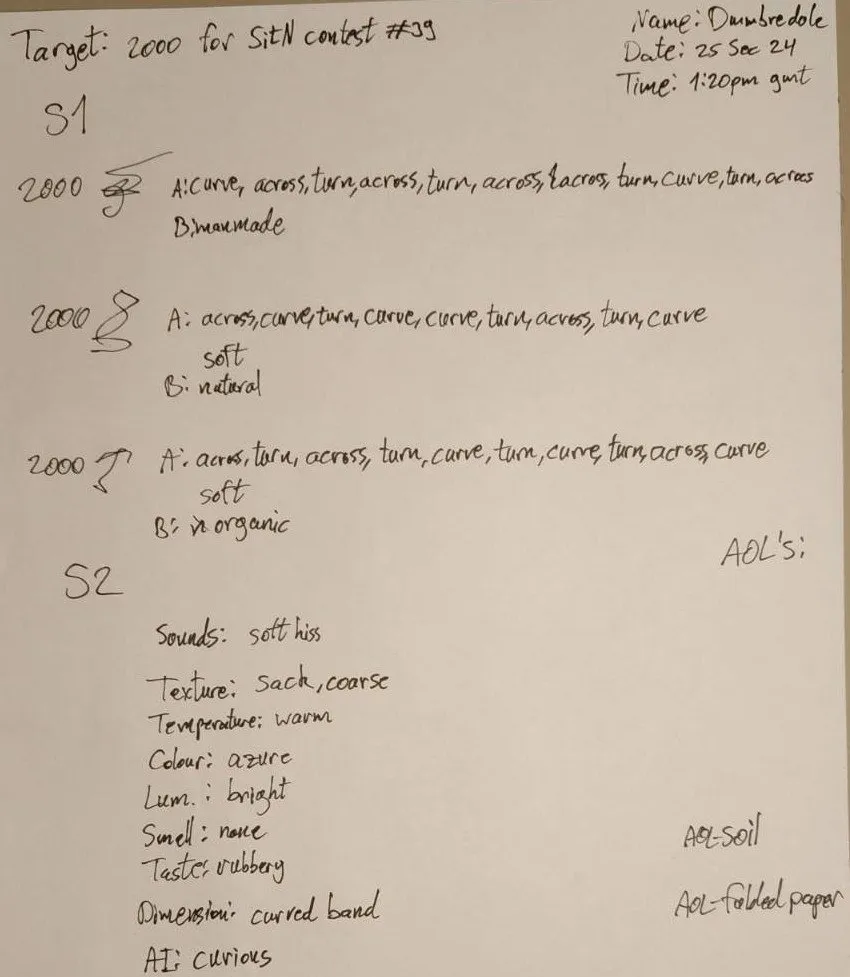 Target: 2000 for SitN contest #39
Name: Dumbredole
Date: 25 Sec 24
Time: 1:20pm gmt
S1
2000 A: curve, across, turn, across, turn, across, across, turn, curve, turn, across
B: manmade
2000 A: across, curve, turn, curve, curve, turn, across, turn, curve
soft
B: natural
2000 A: acros, turn, across, turn, curve, turn, curve, turn, across, curve
soft
B: in organic
AOL's:
S2
Sounds: soft hiss
Texture: sack, coarse
Temperature: warm
Colour: azure
Lum.: bright
Smell: none
AOL-soil
Taste: rubbery
Dimension: curved band
AOL-folded paper
AI: curious